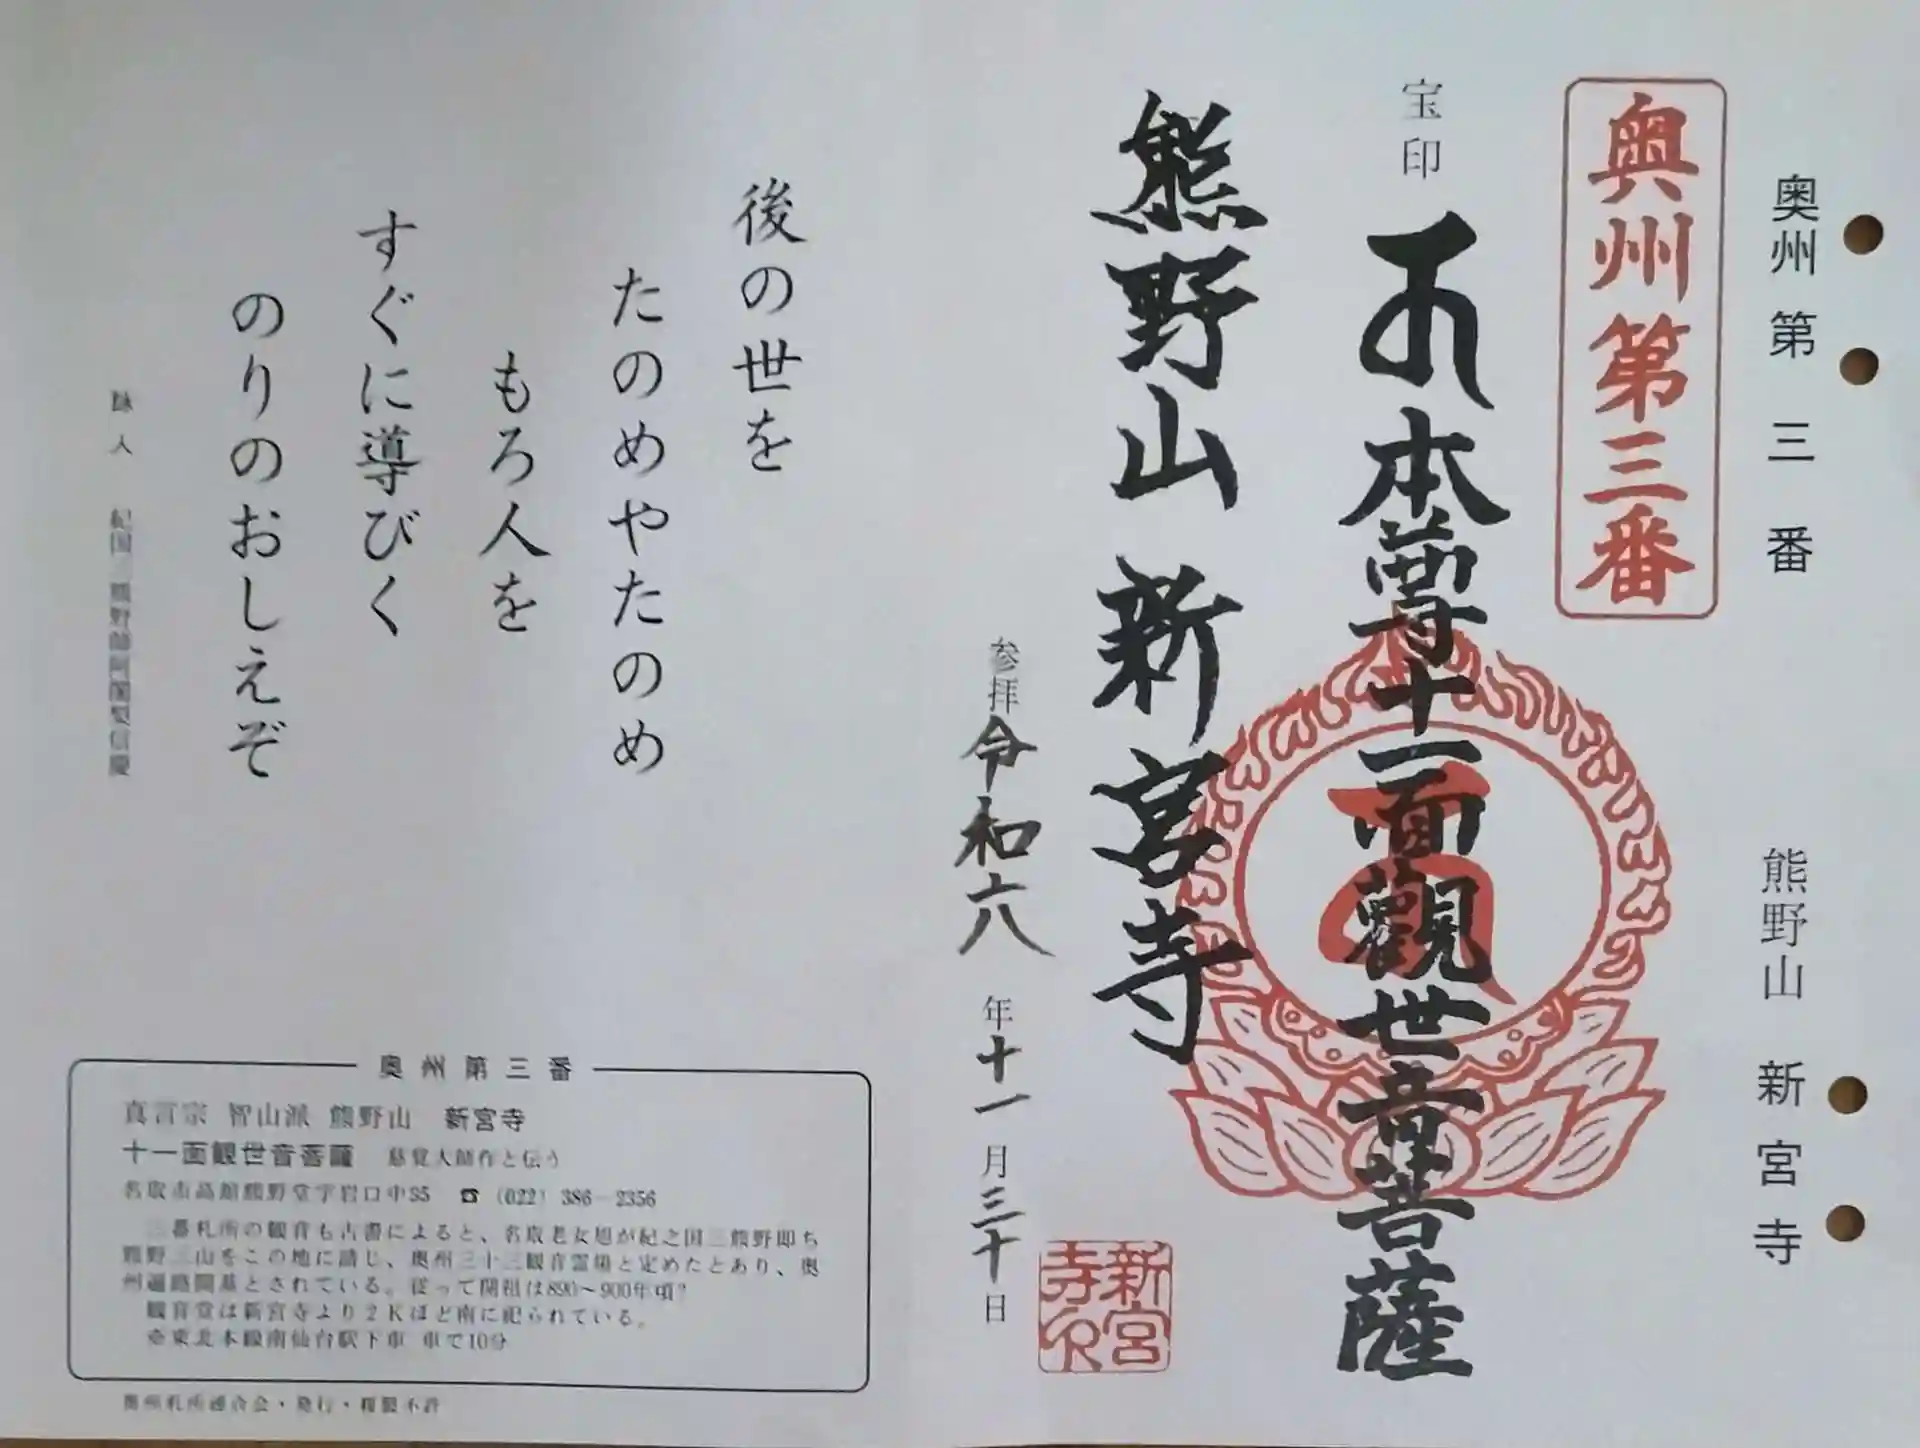 奥州第三番 熊野山 新宮寺
奥州第三番
宝印
本尊十一面觀世音菩薩
熊野山 新宮寺
参拝 令和六年十一月三十日
新宮寺印
後の世を
たのめやたのめ
もろ人を
すぐに導びく
のりのおしえぞ
詠人 紀国三熊野師阿闍梨信慶
奥州第三番
真言宗 智山派 熊野山 新宮寺
十一面観世音菩薩 慈覚大師作と伝う
名取市高舘熊野堂字岩口中35 ☎ (022) 386-2356
三番札所の観音も古書によると、名取老女旭が紀之国三熊野即ち
熊野三山をこの地に請じ、奥州三十三観音霊場と定めたとあり、奥
州遍路開基とされている。従って開祖は890～900年頃?
観音堂は新宮寺より2Kほど南に祀られている。
東北本線南仙台駅下車 車で10分
奥州札所連合会・発行・複製不許